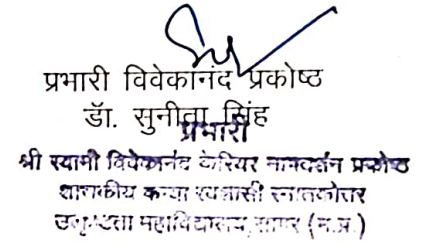 प्रभारी विवेकानंद प्रकोष्ठ
डॉ. सुनीता सिंह
प्रभारी
श्री स्वामी विवेकानंद केरियर मार्गदर्शन प्रकोष्ठ
शासकीय कन्या स्वशासी स्नातकोत्तर
उत्कृष्टता महाविद्यालय, सागर (म.प्र.)